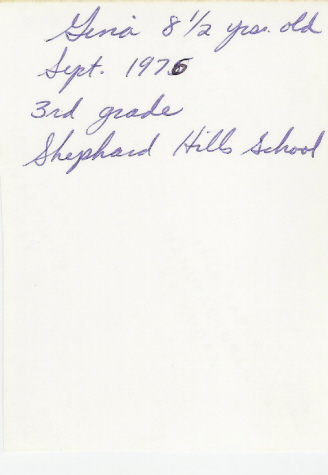 Gina 8 1/2 yrs. old
Sept. 1976
3rd grade
Shephard Hills School